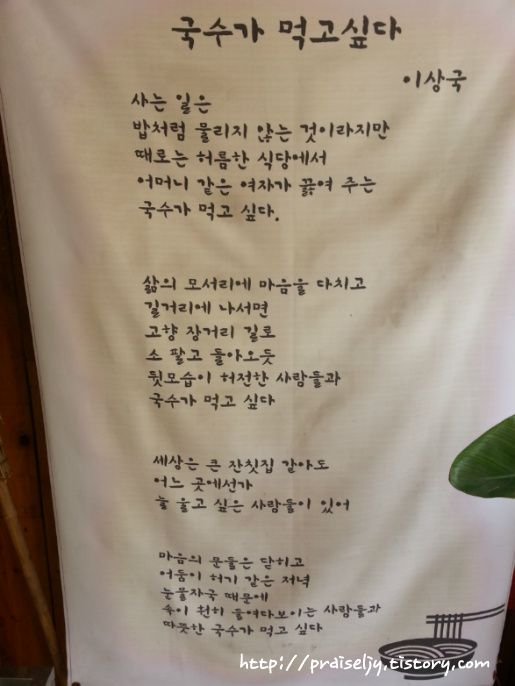 국수가 먹고싶다
이상국
사는 일은
밥처럼 물리지 않는 것이라지만
때로는 허름한 식당에서
어머니 같은 여자가 끓여 주는
국수가 먹고 싶다.
삶의 모서리에 마음을 다치고
길거리에 나서면
고향 장거리 길로
소 팔고 돌아오듯
뒷모습이 허전한 사람들과
국수가 먹고 싶다
세상은 큰 잔칫집 같아도
어느 곳에선가
늘 울고 싶은 사람들이 있어
마음의 문들은 닫히고
어둠이 허기 같은 저녁
눈물자국 때문에
속이 훤히 들여다보이는 사람들과
따뜻한 국수가 먹고 싶다
http://praiseljy.tistory.com